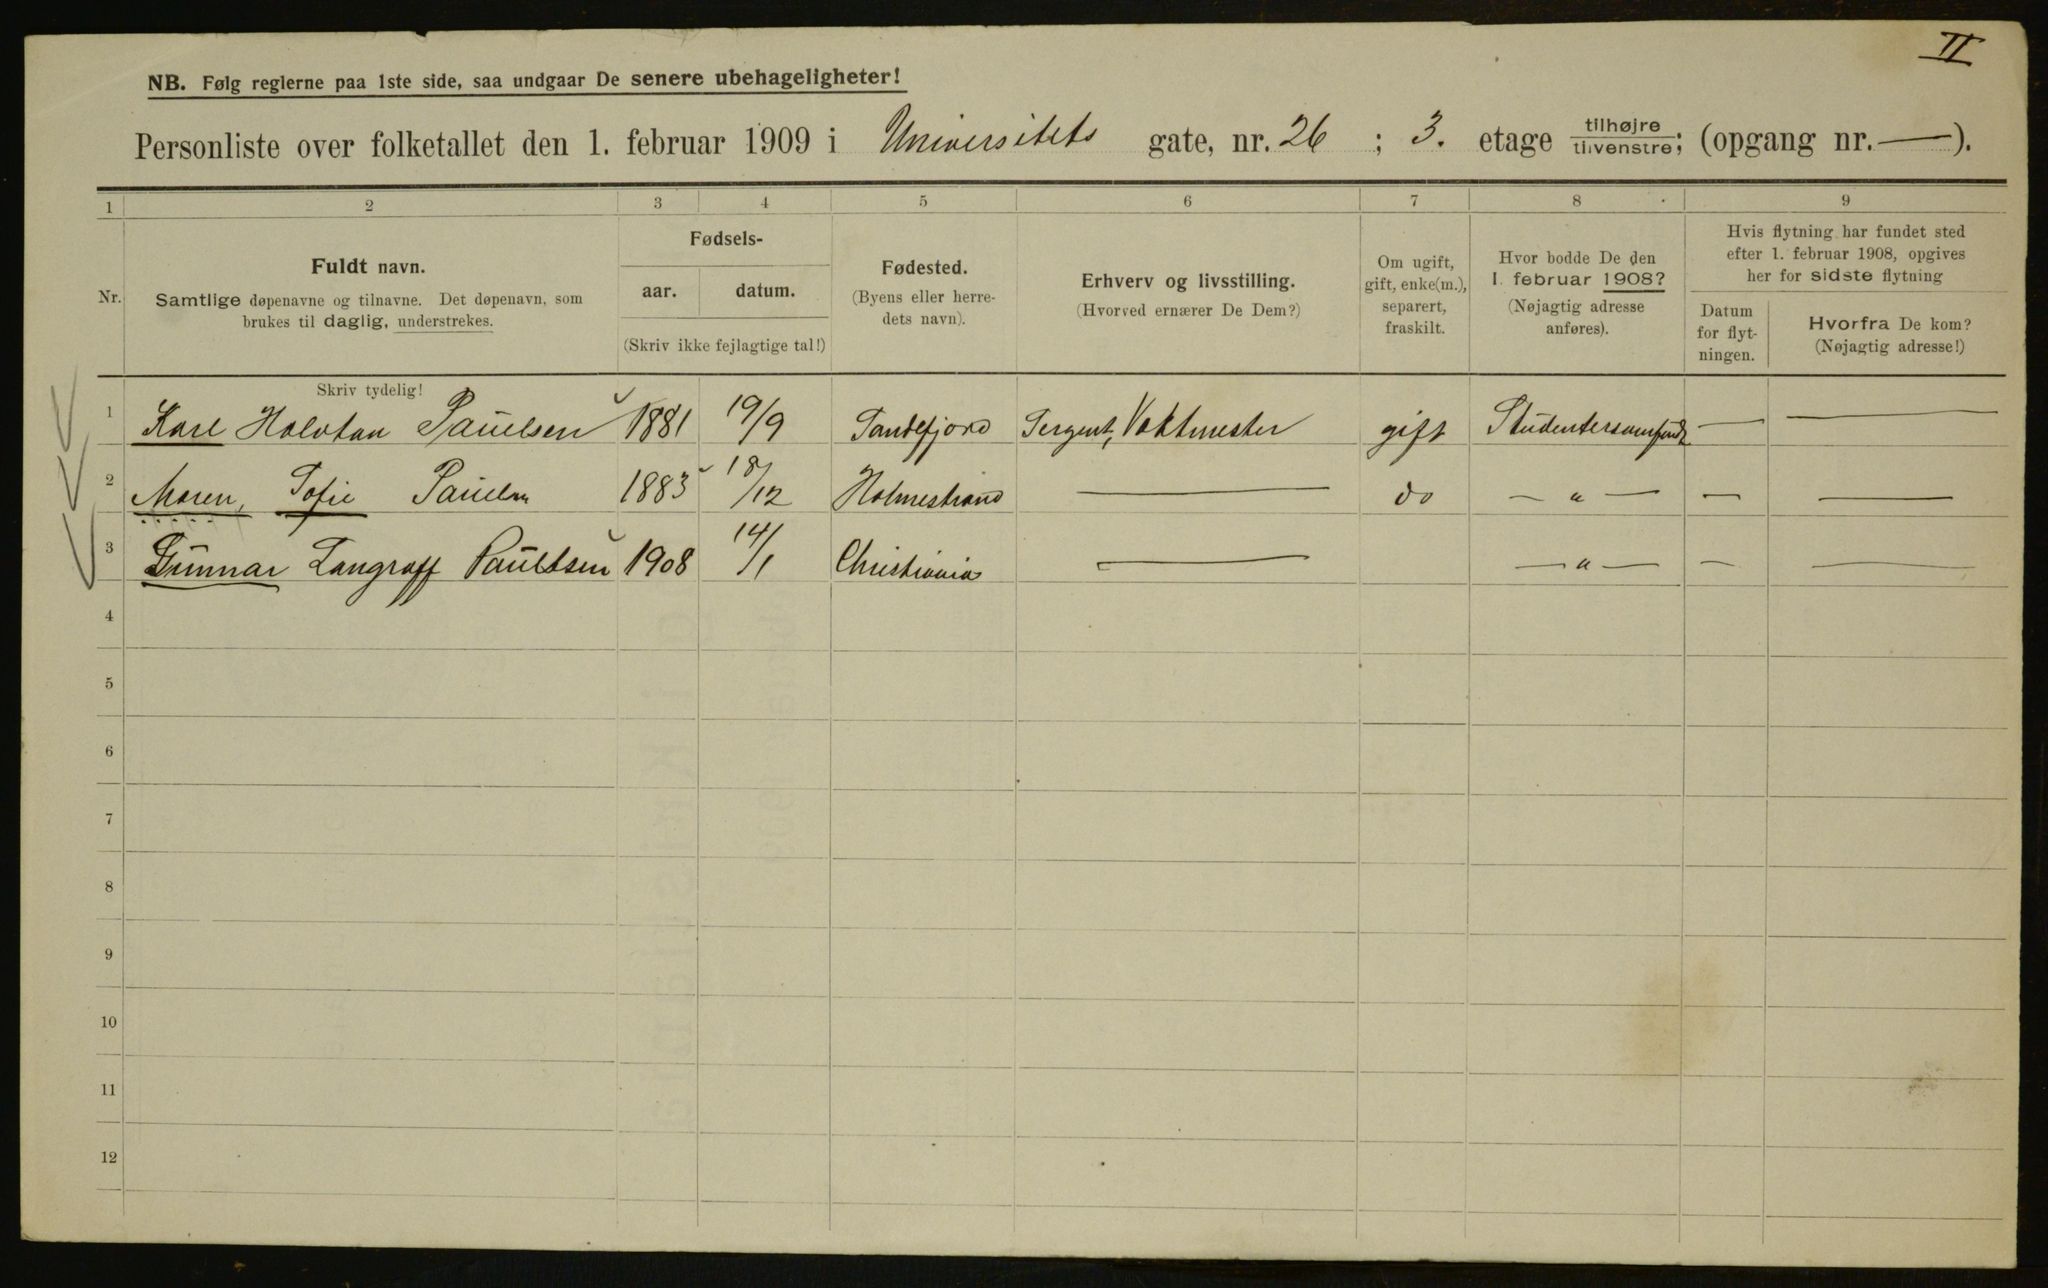 II
NB. Følg reglerne paa 1ste side, saa undgaar De senere ubehageligheter!
Personliste over folketallet den 1. februar 1909 i Universitets gate, nr. 26 ; 3. etage tilhøjre tilvenstre; (opgang nr. — ).
1 2 3 4 5 6 7 8 9
Nr.
Fuldt navn.
Samtlige døpenavne og tilnavne. Det døpenavn, som
brukes til daglig, understrekes.
Fødsels-
aar. datum.
(Skriv ikke fejlagtige tal!)
Fødested.
(Byens eller herre-
dets navn).
Erhverv og livsstilling.
(Hvorved ernærer De Dem?)
Om ugift,
gift, enke(m.),
separert,
fraskilt.
Hvor bodde De den
1. februar 1908?
(Nøjagtig adresse
anføres).
Hvis flytning har fundet sted
efter 1. februar 1908, opgives
her for sidste flytning
Datum
for flyt-
ningen.
Hvorfra De kom?
(Nøjagtig adresse!)
Skriv tydelig!
1 Karl Halvtan Pauelsen 1881 19/9 Sandefjord Sergent, Vaktmester gift Studentersamfundt — —
2 Maren, Sofie Pauelsn 1883 18/12 Holmestrand — do — " — — —
3 Gunnar Langraff Pauelsen 1908 14/1 Christiania — — " — — —
4
5
6
7
8
9
10
11
12